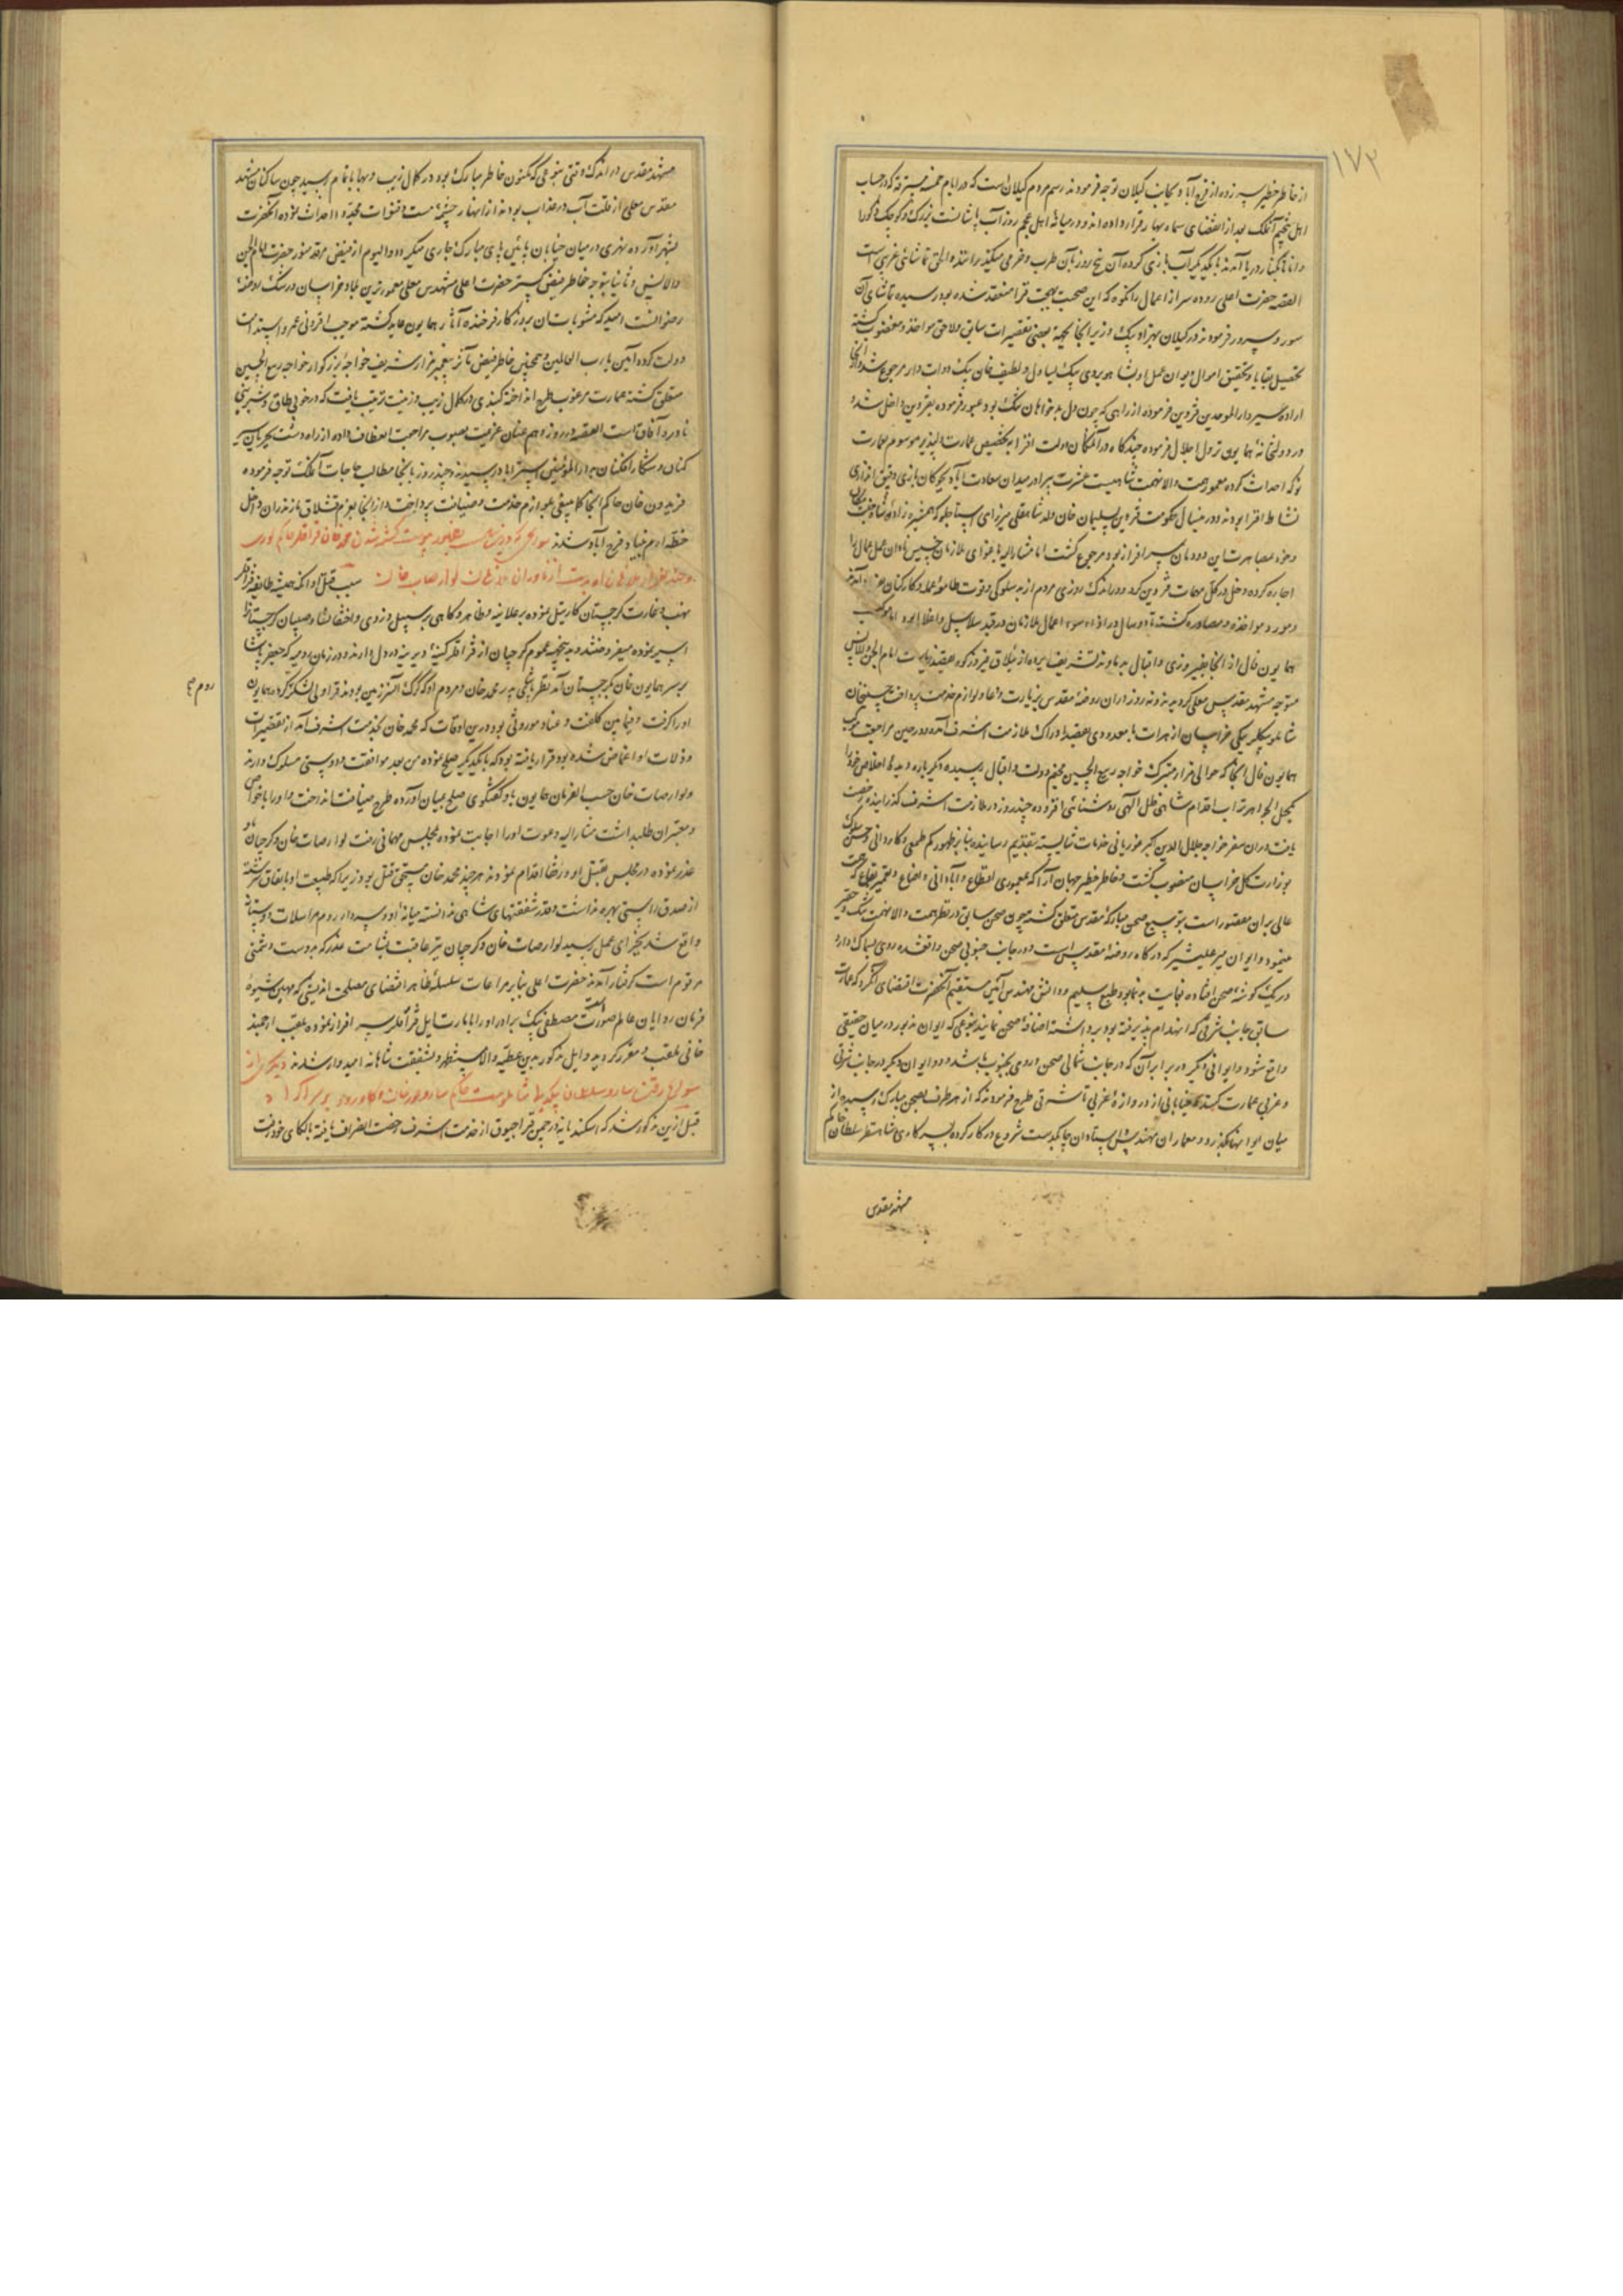 ۱۷۲
از خاطر خطیر سر زده از فرح آباد بجانب گیلان توجه فرمودند رسم مردم گیلان است که در ایام خمسه مسترقه که در حساب
اهل تنجیم آنملک بعد از انقضای سه ماه بهار قرار داده اند و در میانه اهل عجم روز آب پاشانست بزرگ و کوچک و ذکور
و اناث بکنار دریا آمده با یکدیگر آب بازی کرده آن پنج روز بآن طرب و خرمی میگذرانند و الحق تماشائی غریبی است
القصه حضرت اعلی روده سر از اعمال رانکوه که این صحبت بهجت فزا منعقد شده بود رسیده تماشای آن
سور و سرور فرمودند در گیلان بهزاد بیک وزیر آنجا بجهة بعضی تقصیرات سابق و لاحق مواخذ و مغضوب گشته
تحصیل بقایا و تحقیق اموال دیوان عمل او بشاهویردی بیک یساول و لطیف خان بیک دوات دار مرجوع شد و از آنجا
اراده سیر دار الموحدین قزوین فرموده از راهی که چون دل بدخواهان تنک بود عبور فرموده بقزوین داخل شد و
در دولتخانه همایون نزول اجلال فرموده چندگاه در آنمکان دولت افزا به تخصیص عمارت دلپذیر موسوم بعمارت
نو که احداث کرده معمار همت والا نهمت شاهیست عشرت پیرا و در میدان سعادت آباد بچوگان بازی و قپق اندازی
نشاط افزا بودند و در همسال حکومت قزوین بسلیمان خان ولد شاهقلی میرزای استاجلو که همشیره زاده شاه جنت مکان
و خود بمصاهرت این دودمان سرافراز بود مرجوع گشت اما مشارالیه باغوای ملازمان خسیس نادان عمل عمال را
اجاره کرده دخل در کل مهمات قزوین کرد و در اندک روزی مردم از بد سلوکی و قوت طامعه عمله و کارکنان
و مورد مواخذه و مصادره گشته تا دو سال در ازاء سوء اعمال ملازمان در قید سلاسل و اغلال بود اما موکب
همایون فال از آنجا بفیروزی و اقبال به دماوند تشریف برده از ییلاق فیروزکوه بقصد زیارت امام الجن والانس
متوجه مشهد مقدس معلی گردیدند و نه روز در آن روضه مقدس بزیارت و دعا و لوازم خدمت پرداخت حسینخان
شاملو بیگلربیگی خراسان از هرات با معدودی بقصد ادراک ملازمت اشرف آمده و در حین مراجعت موکب
همایون فال آنجا که حوالی مزار متبرک خواجه ربیع الخیثم مخیم دولت و اقبال رسیده دیگر باره دیده اخلاص خود را
بکحل الجواهر تراب اقدام شاهی ظل الهی روشنائی افزوده چند روز در ملازمت اشرف گذرانیده رخصت
یافت در آن سفر خواجه جلال الدین اکبر غوریانی خدمات شایسته بتقدیم رسانیده بنابر ظهور کم طمعی و کاردانی و حسن سلوک
بوزارت کل خراسان منصوب گشت و خاطر خطیر جهان آرا که بمعموری بقاع و آبادانی و تعمیر بقاع که همت
عالی بر آن مقصور است بتوسیع صحن مبارکه مقدس متعلق گشته چون صحن سابق در نظر همت والا نهمت تنک و حقیر
مینمود و ایوان میر علیشیر که درگاه روضه مقدس است و در جانب جنوبی صحن واقعشده روی بشمال دارد
در یک گوشه صحن افتاده بغایت بد نما بود طبع سلیم و دانش مهندس آئین مستقیم آنحضرت اقتضای آن کرد که عمارت
سابق جانب شرقی که انهدام پذیرفته بود برداشته اضافه صحن نمایند بنوعی که ایوان مزبور در میان حقیقی
واقع شود و ایوانی دیگر در برابر آن که در جانب شمالی صحن و روی بجنوب باشد و دو ایوان دیگر در جانب شرقی
و غربی عمارت کنند و خیابانی از دروازه غربی تا شرقی طرح فرمودند که از هر طرف بصحن مبارک رسیده از
میان ایوانها بگذرد و معماران مهندس و استادان چابکدست شروع در کار کرده بسرکاری شاه نظر سلطان حاکم
مشهد مقدس
مشهد مقدس در اندک وقتی بنوعی که مکنون خاطر مبارک بود در کمال زیب و بها باتمام رسید چون ساکنان مشهد
مقدس معلی از قلت آب در عذاب بودند از انهار چشمه مست و قنوات مجدد احداث نموده آنحضرت
بشهر آورده نهری در میان خیابان پائین پای مبارک جاری میگردد و الیوم از فیض مرقد منور حضرت امام الجن
والانس و ثانیا توجه خاطر فیض گستر حضرت اعلی مشهد مقدس معلی معمورترین بلاد خراسان و رشک روضه
رضوانست امید که مثوبات آن بروزگار فرخنده آثار همایون عاید گشته موجب افزونی عمر و استدامت
دولت گردد آمین یا رب العالمین و همچنین خاطر فیض مآثر بتعمیر مزار شریف خواجه بزرگوار خواجه ربیع الخیثم
متعلق گشته عمارت مرغوب طرح انداخته گنبدی در کمال زیب و زینت ترتیب یافت که در خوبی طاق و شیرینی
نادره آفاق است القصه در روز دهم عنان عزیمت بصوب مراجعت انعطاف داده از راه دشت بحریان سیر
کنان و شکار افکنان به دار المؤمنین استراباد رسیدند و چند روز بانجاح مطالب حاجات آنملک توجه فرموده
فریدون خان حاکم آنجا کما ینبغی بلوازم خدمت و ضیافت پرداخت و از آنجا بعزم قشلاق مازندران داخل
خطه ارم بنیاد فرح آباد شدند سوانحی که درین سال بظهور پیوست کشته شدن محمد خان قزاقلر حاکم لوری
و چند نفر از ملازمان او بدست ناوران ملازمان لوارصاب خان سبب قتل او آنکه همیشه طایفه قزاقلر
بنهب و غارت گرجستان کارتیل نموده برعلانیه و ظاهر و گاهی بر سبیل دزدی و اختفا نساء و صبیان گرجستان را
اسیر نموده میفروختند و بدین جهة عموم گرجیان از قزاقلر کینه دیرینه در دل دارند و در زمان رومیه که جعفر پاشا
بر سر همایون خان گرجستان آمد نظر باینکه پدر محمد خان و مردم او گرگ آنسرزمین بودند قراولی لشکر کرده همایون
روم
او را گرفت و فیمابین کلفت و عناد موروثی بود درین اوقات که محمد خان بخدمت اشرف آمد از تقصیرات
و زلات او اغماض شده بود قرار یافته بود که با یکدیگر صلح نموده من بعد موافقت و دوستی مسلوک دارند
ولوارصاب خان حسب الفرمان همایون با او گفتگوی صلح بمیان آورده طرح ضیافت انداخت و او را با خواص
و معتبران طلبداشت مشارالیه دعوت او را اجابت نموده بمجلس مهمانی رفت لوارصاب خان و گرجیان با او
غدر نموده در مجلس بقتل او و رفقا اقدام نمودند هر چند محمد خان مستحق قتل بود زیرا که طبیعت او با نفاق سرشته
از صدق و راستی بهره نداشت و قدر شفقتهای شاهی ندانسته میانه او و سردار روم مراسلات دوستانه
واقع شد بجزای عمل رسید لوارصاب خان و گرجیان نیز عاقبت بشامت غدر که بدوست و دشمنی
مذموم است گرفتار آمدند حضرت اعلی بنابر مراعات سلسله ظاهر اقتضای مصلحت اندیشی که مهین شیوه
فرمان روایان عالم صورت است مصطفی بیک برادر او را بامارت ایل قزاقلر سرافراز نموده بلقب ارجمند
خانی ملقب و مفرز گردید و ایل مذکور بدین عطیه والا مستظهر و بشفقت شاهانه امیدوار شدند دیگری از
سوانح رفتن سارو سلطان بیکدلو شاملوست حاکم
قبل ازین مذکور شد که اسکندر پاشا در چمن قراجبوق از خدمت اشرف رخصت انصراف یافته بالکای خود رفت